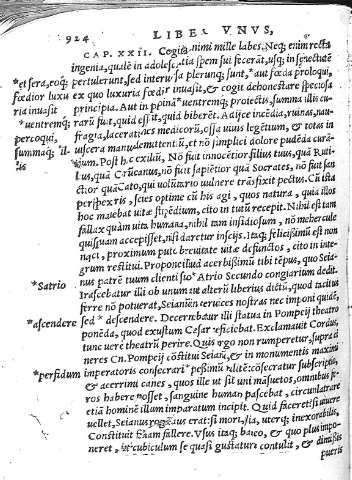 924 LIBER VNVS,
CAP. XXII. Cogita animi mille labes. Neq; enim recta
ingenia, qualē in adolescētia spem sui fecerāt, usq; in senectutē
*et sera, eoq; pertulerunt, sed interuersa plerunq; sunt, *aut foeda proloqui,
foedior luxu ex quo luxuria foedior inuasit, & coegit dehonestare speciosa
ria inuasit principia. Aut in popinā *uentremq; proiectis, summa illis cu-
*uentremq; rarū fuit, quid essēt, quid biberēt. Adijce incēdia, ruinas, nau-
percoqui, fragia, lacerationes medicorū, ossa uiuis legētium, & totas in
summaq; il- uiscera manus demittentiū, et nō simplici dolore pudēda curā-
lis tium. Post hec exiliū, Nō fuit innocētior filius tuus, quā Ruti-
lius, quā Nō fuit sapiētior quā Socrates, nō fuit san-
ctior quā Cato, qui uolūtario uulnere trāsfixit pectus. Cū ista
perspexeris, scies optime cū his agi, quos natura, quia illos
hoc manebat uitæ stipēdium, cito in tutū recepit. Nihil est tam
fallax quàm uita humana, nihil tam insidiosum, nō mehercule
quisquam accepisset, nisi daretur inscijs. Itaq; felicissimū est non
nasci, proximum puto breuitate uitæ defunctos, cito in inte-
grum restitui. Propone illud acerbissimū tibi tēpus, quo Seia-
*Satrio nus patrē tuum clienti suo *Atrio Secundo congiarium dedit.
Irascebatur illi ob unum aut alterū liberius dictū, quod tacitus
ferre nō potuerat, Seianū in ceruices nostras nec imponi quidē,
*ascendere sed *descendere. Decernebatur illi statua in Pompeij theatro
ponēda, quod exustum Cæsar reficiebat. Exclamauit Cordus,
tunc uere theatrū perire. Quis ergo non rumperetur, supra ci
neres Cn. Pompeij cōstitui Seianū, & in monumentis maximi
*perfidum imperatoris consecrari *pessimū militē? cōsecratur subscriptio,
& acerrimi canes, quos ille ut sibi uni māsuetos, omnibus fe-
ros haberet, sanguine humano pascebat, circumlatrare
etiā hominē illum imparatum incipit. Quid faceret? si uiuere
uellet, Seianus rogādus erat: si mori, filia, uterq; inexorabilis,
Constituit filiam fallere. Vsus itaq; balneo, & quo plus impo-
neret, in cubiculum se quasi gustaturus contulit, & dimissis
pueris